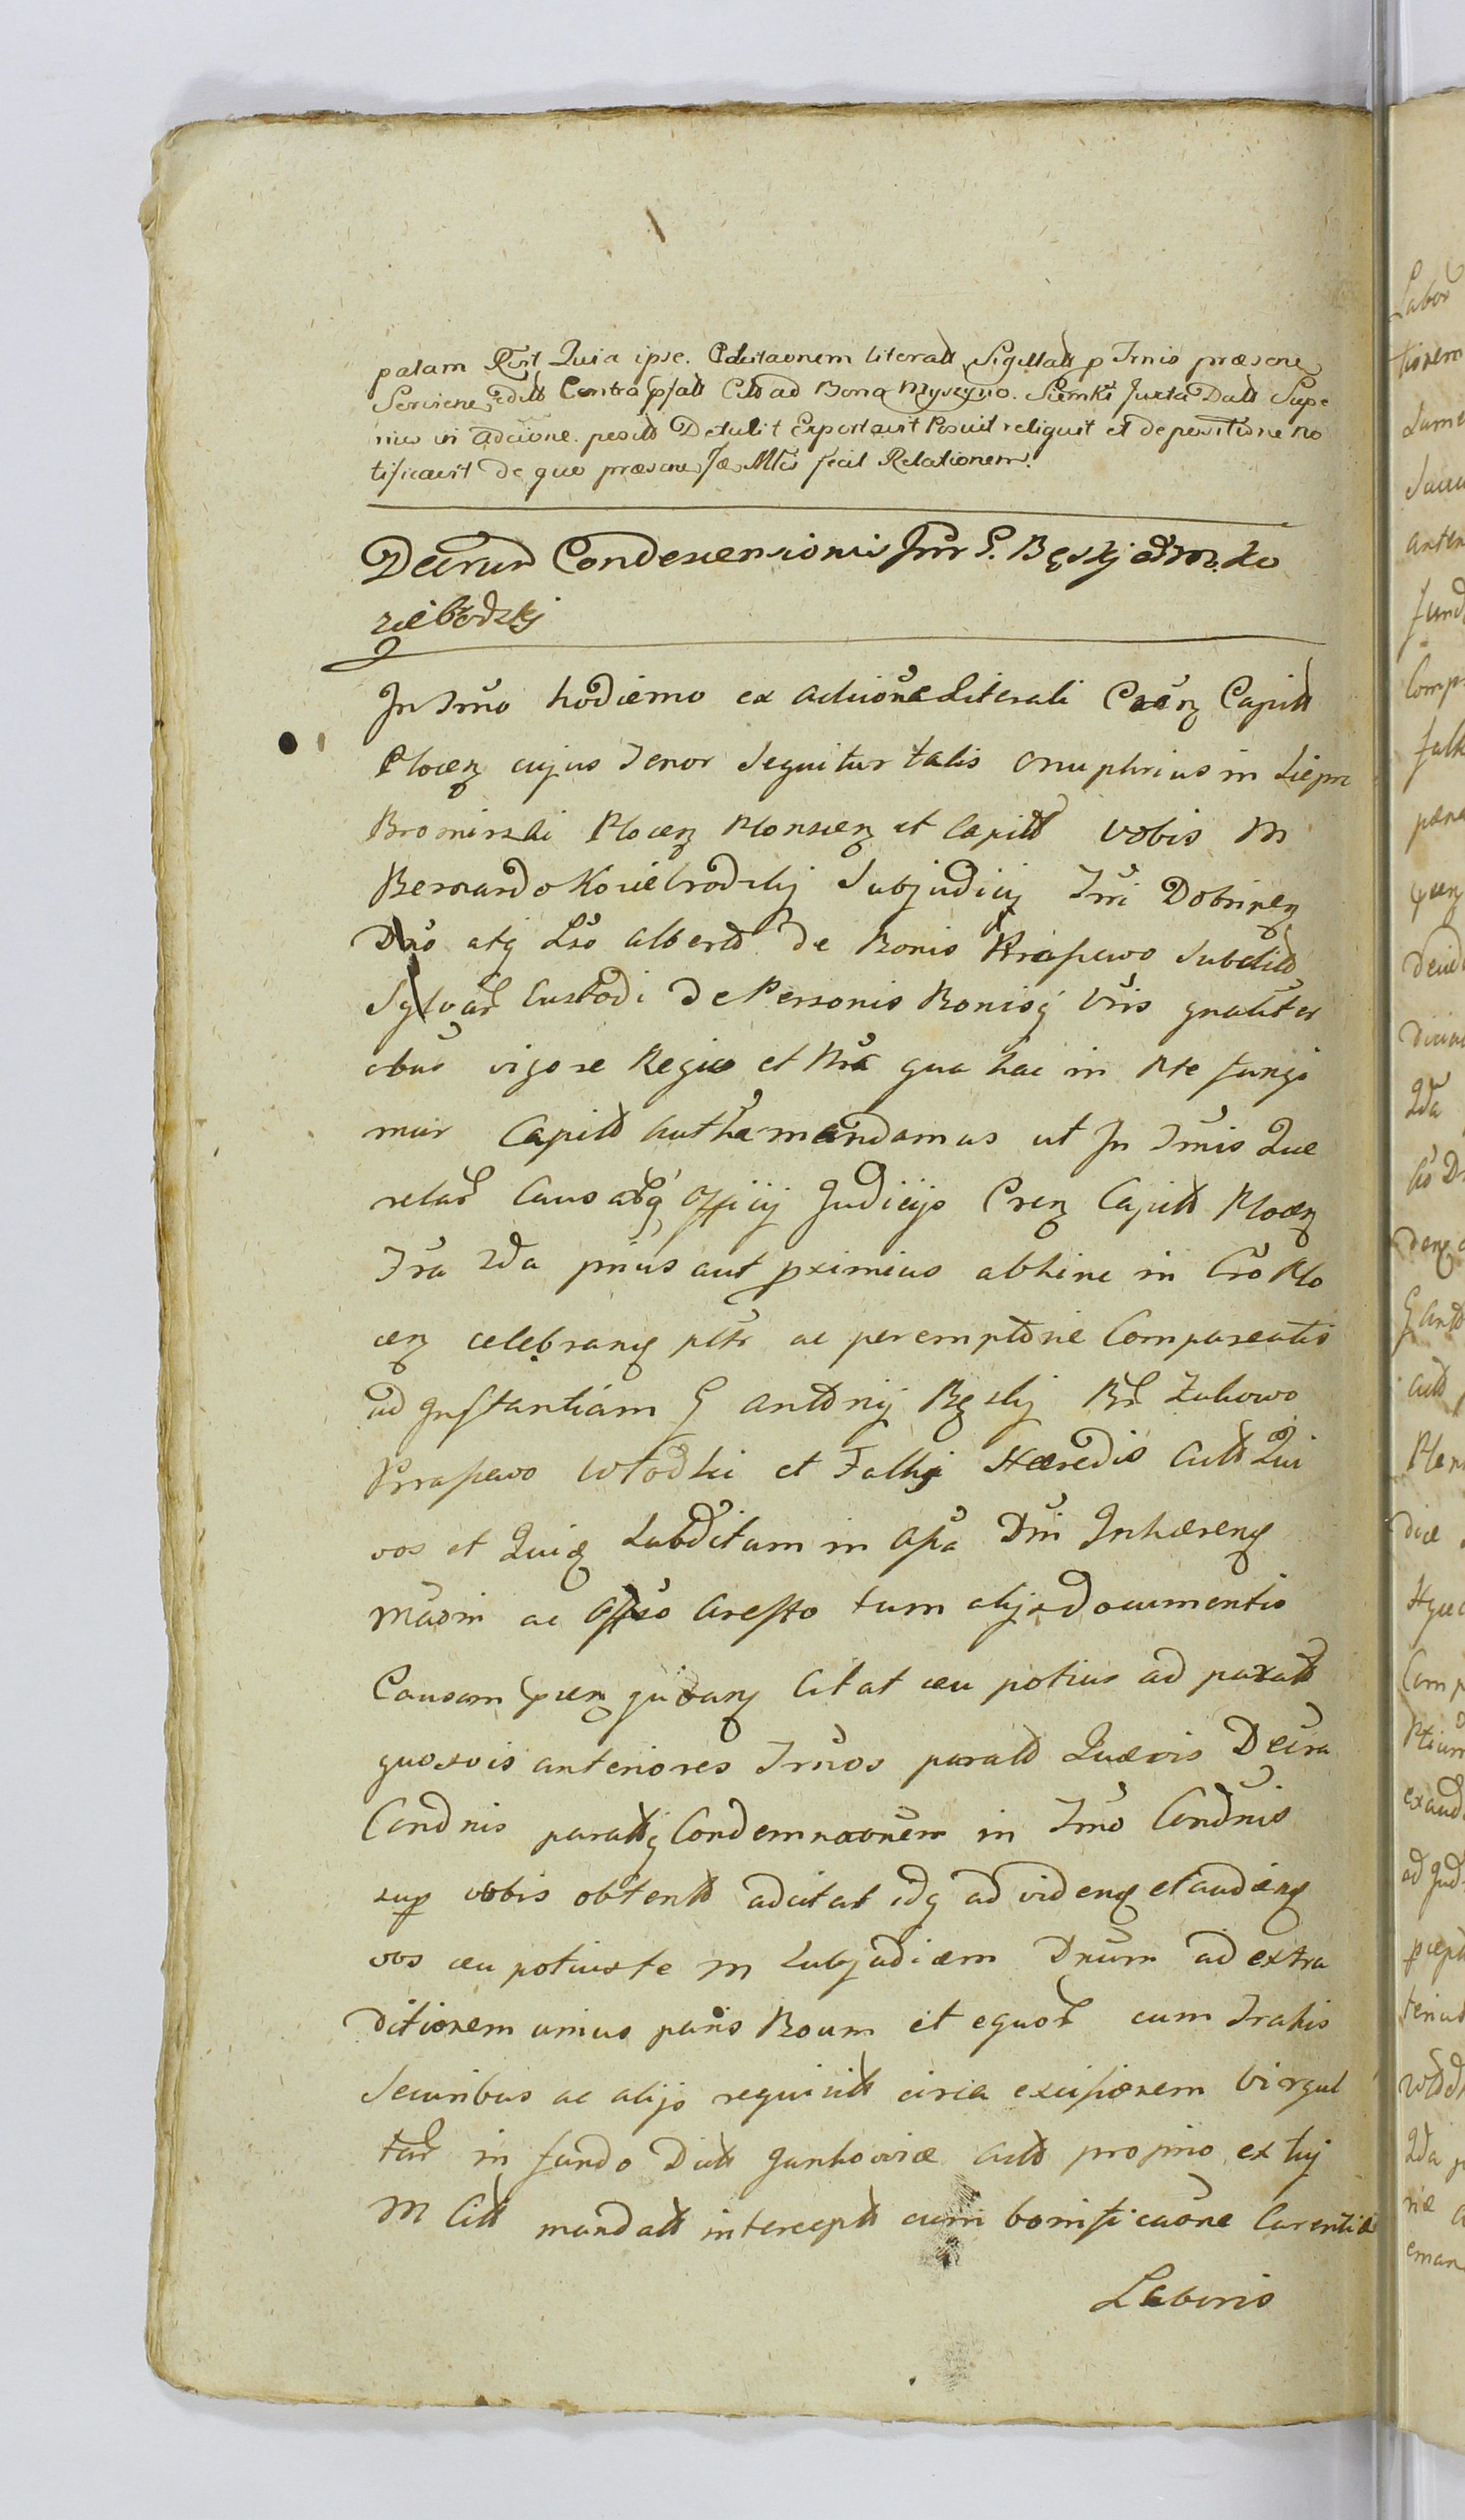 palam Rt Quia ipse. Citaonem literatt Sigillatt p Trnis præsene
Scrisene editt Contra psatt Citt ad Bona Myszyno. Siemki Juxta Datt Supe
rius in adcione. positt Detulit Exportavit Posuit reliquit et de positione no
tificavit de quo præsene Jæ Mtis fecit Relationem.
Decrum Condescensionis Inr G. Bęskj ad M. Ko
ziebrodzkj
In Trno hodierno ex Actione Literali Cren Capitt
Plocen cujus Tenor Sequitur talis Onuphrius in Liepn
Bromirski Plocen Plonscen et Capitt vobis M
Bernardo Koziebrodzkj Subjudicij Trri Dobrinen
Dno atq Lso Albertt de Bonis Krajewo Subditt
Sylvar Custodi de Personis Bonisq Vris gnaliter
obus vigore Regia et Nra qua hac in Pte fungi
mur Capitt Authe mandamus ut In Trnis Que
relar Causarq Officij Judicijs Cren Capitt Plocen
Tra 2da prius aut pximius abhinc in Cro Plo
cen celebranq pltr ac peremptorie Compareatis
ad Instantiam G Antonij Bęskj Br Zukowo
Krajewo Włodki et Falkj Hæredis Actt Qui
vos et Quiq Subditum in Apa Dni Inhæreng
maoni ac Offso Aresto tum alijs documentis
Causam pcen guvanq Citat ceu potius ad paratt
quosvis anteriores Trnos paratt Quævis Decra
Condnis parattq Condemnaonem in Trno Condnis
sup vobis obtentt adcitat idq ad videnq et audienq
vos ceu potius te M Subjudicem Dnum ad extra
ditionem unius paris Boum et equor cum Trahis
Securibus ac alijs requisitt circa excisionem Virgul
tar in fundo Ditt Junkowiæ Actt proprio ex tuj
M Citt mandatt intercept cum bonificaone Carentiæ
Laboris